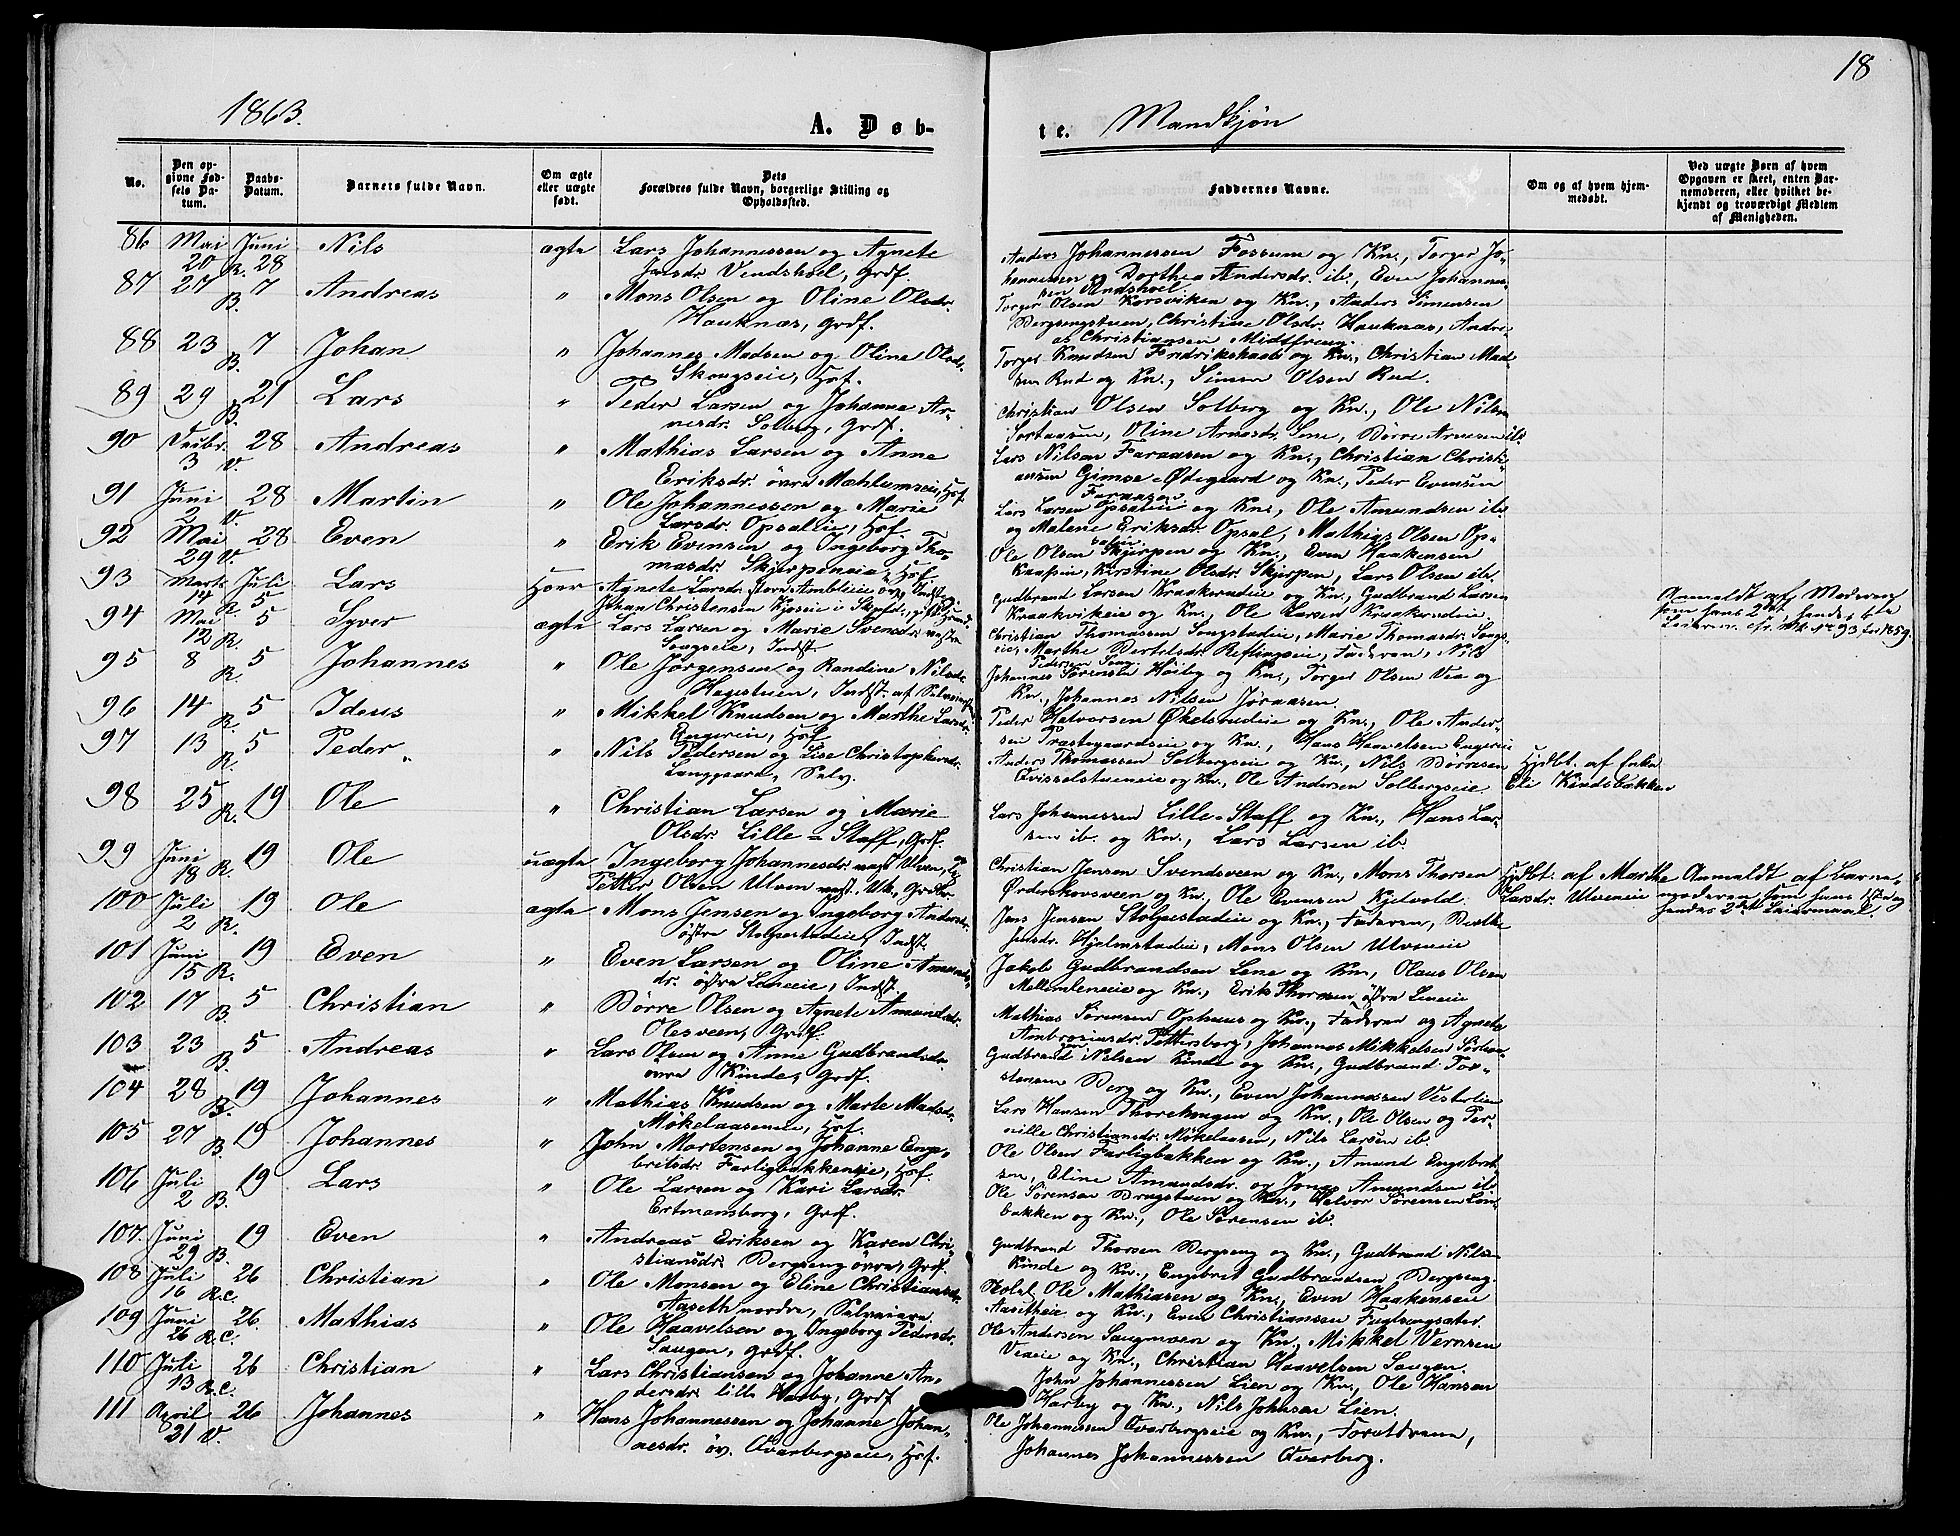 18
1863.
A. Døb-
te. Mandkjøn
No.
Den op-
givne Fød-
sels Da-
tum.
Daabs-
Datum.
Barnets fulde Navn.
Om ægte
eller uægte
født.
Dets
Forældres fulde Navn, borgerlige Stilling og
Opholdssted.
Faddernes Navne.
Om og af hvem hjem-
medøbt.
Ved uægte Børn af hvem
Opgaven er skeet, enten Bar-
nemoderen, eller hvilket be-
kjendt og troværdigt Medlem
af Menigheden.
86 Mai 20 R. Juni 28 Nils ægte Lars Johannessen og Agnete
Vendshoel, Grdf.
Anders Johannessen Fossum og Kn., Torger Jo-
hannessen og Dorthea Andersdr. ib., Even Johannes-
sen Vendshoel
87 27 B. 7 Andreas " Mons Olsen og Oline Olsdr.
Hauknæs, Grdf.
Torger Olsen Korsviken og Kn., Anders Simensen
Bergsengstuen, Christine Olsdr. Hauknæs, Andre-
as Christiansen
88 23 B. 7 Johan " Johannes Madsen og Oline Olsdr.
Skougseie, Hsf.
Torger Knudsen Fredrikshald og Kn., Christian Mad-
sen Rud og Kn., Simen Olsen Rud.
89 29 B. 21 Lars " Peder Larsen og Johanne Ar-
nesdr. Solberg, Grdf.
Christian Olsen Solberg og Kn., Ole Nilsen
Oline Arnesdr. Børre Arnesen ib.
90 3 V. 28 Andreas " Mathias Larsen og Anne
Eriksdr. øvre Mæhlumseie, Hsf.
Lars Nilsen Faraasen og Kn., Christian Christi-
ansen Gimse-Ødegaard og Kn., Peder Evensen
Faraasen
91 Juni 2 V. 28 Martin " Ole Johannessen og Marie
Larsdr. Opsaleie, Hsf.
Lars Larsen Opsaleie og Kn., Ole Amundsen ib.
og Malene Eriksdr. Opsal, Mathias Olsen Op-
saleie.
92 Mai 29 V. 28 Even " Erik Evensen og Ingeborg Tho-
masdr. Skjerpeneie, Hsf.
Ole Olsen Skjerpen og Kn., Even Haakensen
Kirstine Olsdr. Skjerpen, Lars Olsen ib.
93 Marts 14 R. Juli 5 Lars Hoer Agnete Larsdr.
Johan Christensen
Gudbrand Larsen Kraakerudeie, Gudbrand Larsen
Kraakvikeie og Kn., Ole Larsen Kraakerudeie
Anmeldt af Moderen
som hans 2det hendes 6te
Leierm. cfr. No. 93 for 1859.
94 Mai 12 R. 5 Syver ægte Lars Larsen og Marie Svensdr.
Songseie, Indst.
Christian Thomassen Songstadeie, Marie Thomasdr. Songs-
eie, Marthe Bertelsdr. Reflingseie, Faderen, Nils
Pedersen Song
95 8 R. 5 Johannes " Ole Jørgensen og Randine Nilsdr.
Hagestuen, Indst.
Johannes Sørensen Høiby og Kn., Torger Olsen Vea og
Kn., Johannes Nilsen Jøraasen.
96 14 R. 5 Ideus " Mikkel Knudsen og Marthe Larsdr.
Engereie, Hsf
Peder Halvorsen Økelsrudeie og Kn., Ole Ander-
sen Præstegaardseie og Kn., Hans Haavelsen Engereie
97 13 R. 5 Peder " Nils Pedersen og Lise Christophersdr.
Langgaard, Selv.
Anders Thomassen Solbergseie og Kn., Nils Børresen
Qvisselstueneie og Kn., Ole Andersen Solbergseie
Hjdbt. af Enke
Eli Kindsbakken
98 25 R. 19 Ole " Christian Larsen og Marie
Olsdr. Lille-Staff, Grdf.
Lars Johannessen Lille-Staff og Kn., Hans Lar-
sen ib. og Kn., Lars Larsen ib.
99 Juni 18 R. 19 Ole uægte Ingeborg Johannesdr. Ulven,
Petter Olsen Ulven
Christian Jensen Svendsveen og Kn., Mons Thorsen
Ørderskovsveen og Kn., Ole Evensen Kjelvold.
Hjdbt. af Marthe
Larsdr. Ulveneie
Anmeldt af Barne-
moderen som hans 1ste og
hendes 2det Leiermaal.
100 Juli 2 R. 19 Ole ægte Mons Jensen og Ingeborg Andersdr.
østre Stolpestadeie, Indst.
Jens Jensen Stolpestadeie og Kn., Faderen, Berthe
Jensdr. Hjelmstadeie, Mons Olsen Ulveneie
101 Juni 15 R. 19 Even " Even Larsen og Oline Amunds-
dr. østre Leneeie, Indst.
Jakob Gudbrandsen Lene og Kn., Olaus Olsen
Mellemleneeie og Kn., Erik Thorsen østre Leneeie
102 17 B. 5 Christian " Børre Olsen og Agnete Amundsdr.
Olesveen, Grdf.
Mathias Sørensen Ophuus og Kn., Faderen og Agnete
Ambrosiusdr. Pettersborg, Johannes Mikkelsen
103 23 B. 5 Andreas " Lars Olsen og Anne Gudbrandsdr.
øvre Kinde, Grdf.
Gudbrand Nilsen Kinde og Kn., Gudbrand Tor-
stensen Berg og Kn., Even Johannessen Vesterlien
104 28 B. 19 Johannes " Mathias Knudsen og Marte Madsdr.
Møkelaaseneie, Hsf.
Lars Hansen Thorehaugen og Kn., Ole Olsen og Per-
nille Christiansdr. Møkelaasen, Nils Larsen ib.
105 27 B. 19 Johannes " John Mortensen og Johanne Enge-
bretsdr. Farligbakkeneie, Hsf.
Ole Olsen Farligbakken og Kn., Amund Engebret-
sen, Eline Amundsdr. og Jonas Amundsen ib.
106 Juli 2 B. 19 Lars " Ole Larsen og Kari Larsdr.
Ertmansborg, Grdf.
Ole Sørensen Brugstuen og Kn., Halvor Sørensen Lin-
bakken og Kn., Ole Sørensen ib.
107. Juni 29 B. 19 Even " Andreas Eriksen og Karen Chri-
stiansdr. Bergseng øvre, Grdf.
Gudbrand Thorsen Bergseng og Kn., Gudbrand Nilsen
Kinde og Kn., Engebret Gudbrandsen Bergseng.
108 Juli 16 R.C. 26 Christian " Ole Monsen og Eline Christiansdr.
Aaseth nordre, Selveier.
Skolel. Ole Mathiasen og Kn., Even Haakensen
Aasetheie og Kn., Even Christiansen Fuglsengsæter.
109 Juni 26 R.C. 26. Mathias " Ole Haavelsen og Ingeborg Pedersdr.
Saugen, Grdf.
Ole Andersen Saugmoen og Kn., Mikkel Vernsen
Veaeie og Kn., Christian Haavelsen Saugen.
110 Juli 13 R.C. 26 Christian " Lars Christiansen og Johanne An-
dersdr. lille Harby, Grdf
John Johannessen Lien og Kn., Ole Hansen
Harby og Kn., Nils Johnsen Lien.
111 April 21 V. 26 Johannes " Hans Johannessen og Johanne Johan-
nesdr. øv. Qvarbergseie, Hsf.
Ole Johannessen Qvarbergseie og Kn., Forældrene,
Johannes Johannessen Qvarberg.